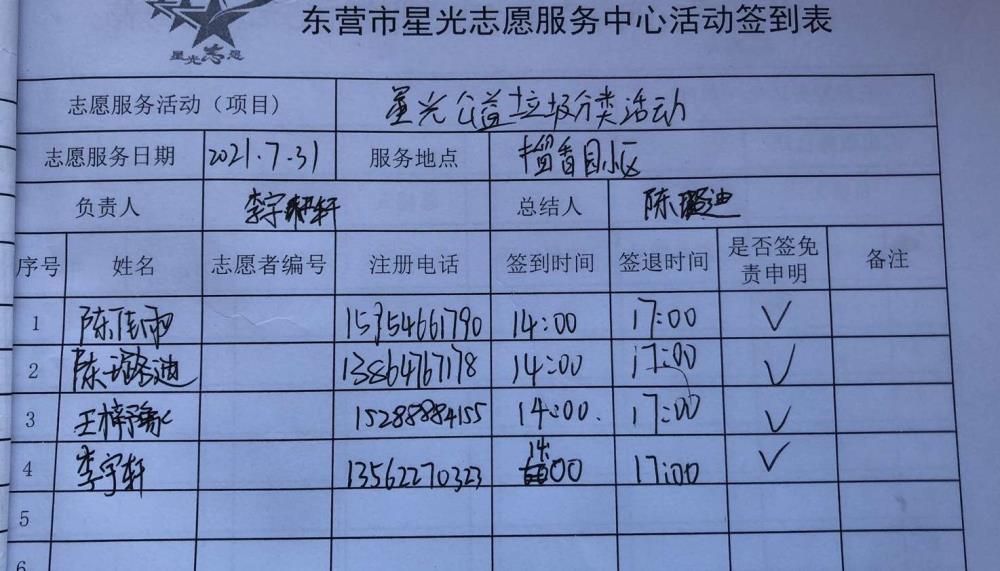 星光志愿
东营市星光志愿服务中心活动签到表
志愿服务活动（项目） 星光公益垃圾分类活动
志愿服务日期 2021.7.31 服务地点 留香园小区
负责人 李宇轩 总结人 陈璐迪
序号 姓名 志愿者编号 注册电话 签到时间 签退时间 是否签免责申明 备注
1 陈佳雨 15954661790 14:00 17:00 ✓
2 陈璐迪 13864767178 14:00 17:00 ✓
3 王梓 15288884155 14:00. 17:00 ✓
4 李宇轩 13562270323 14:00 17:00 ✓
5
6